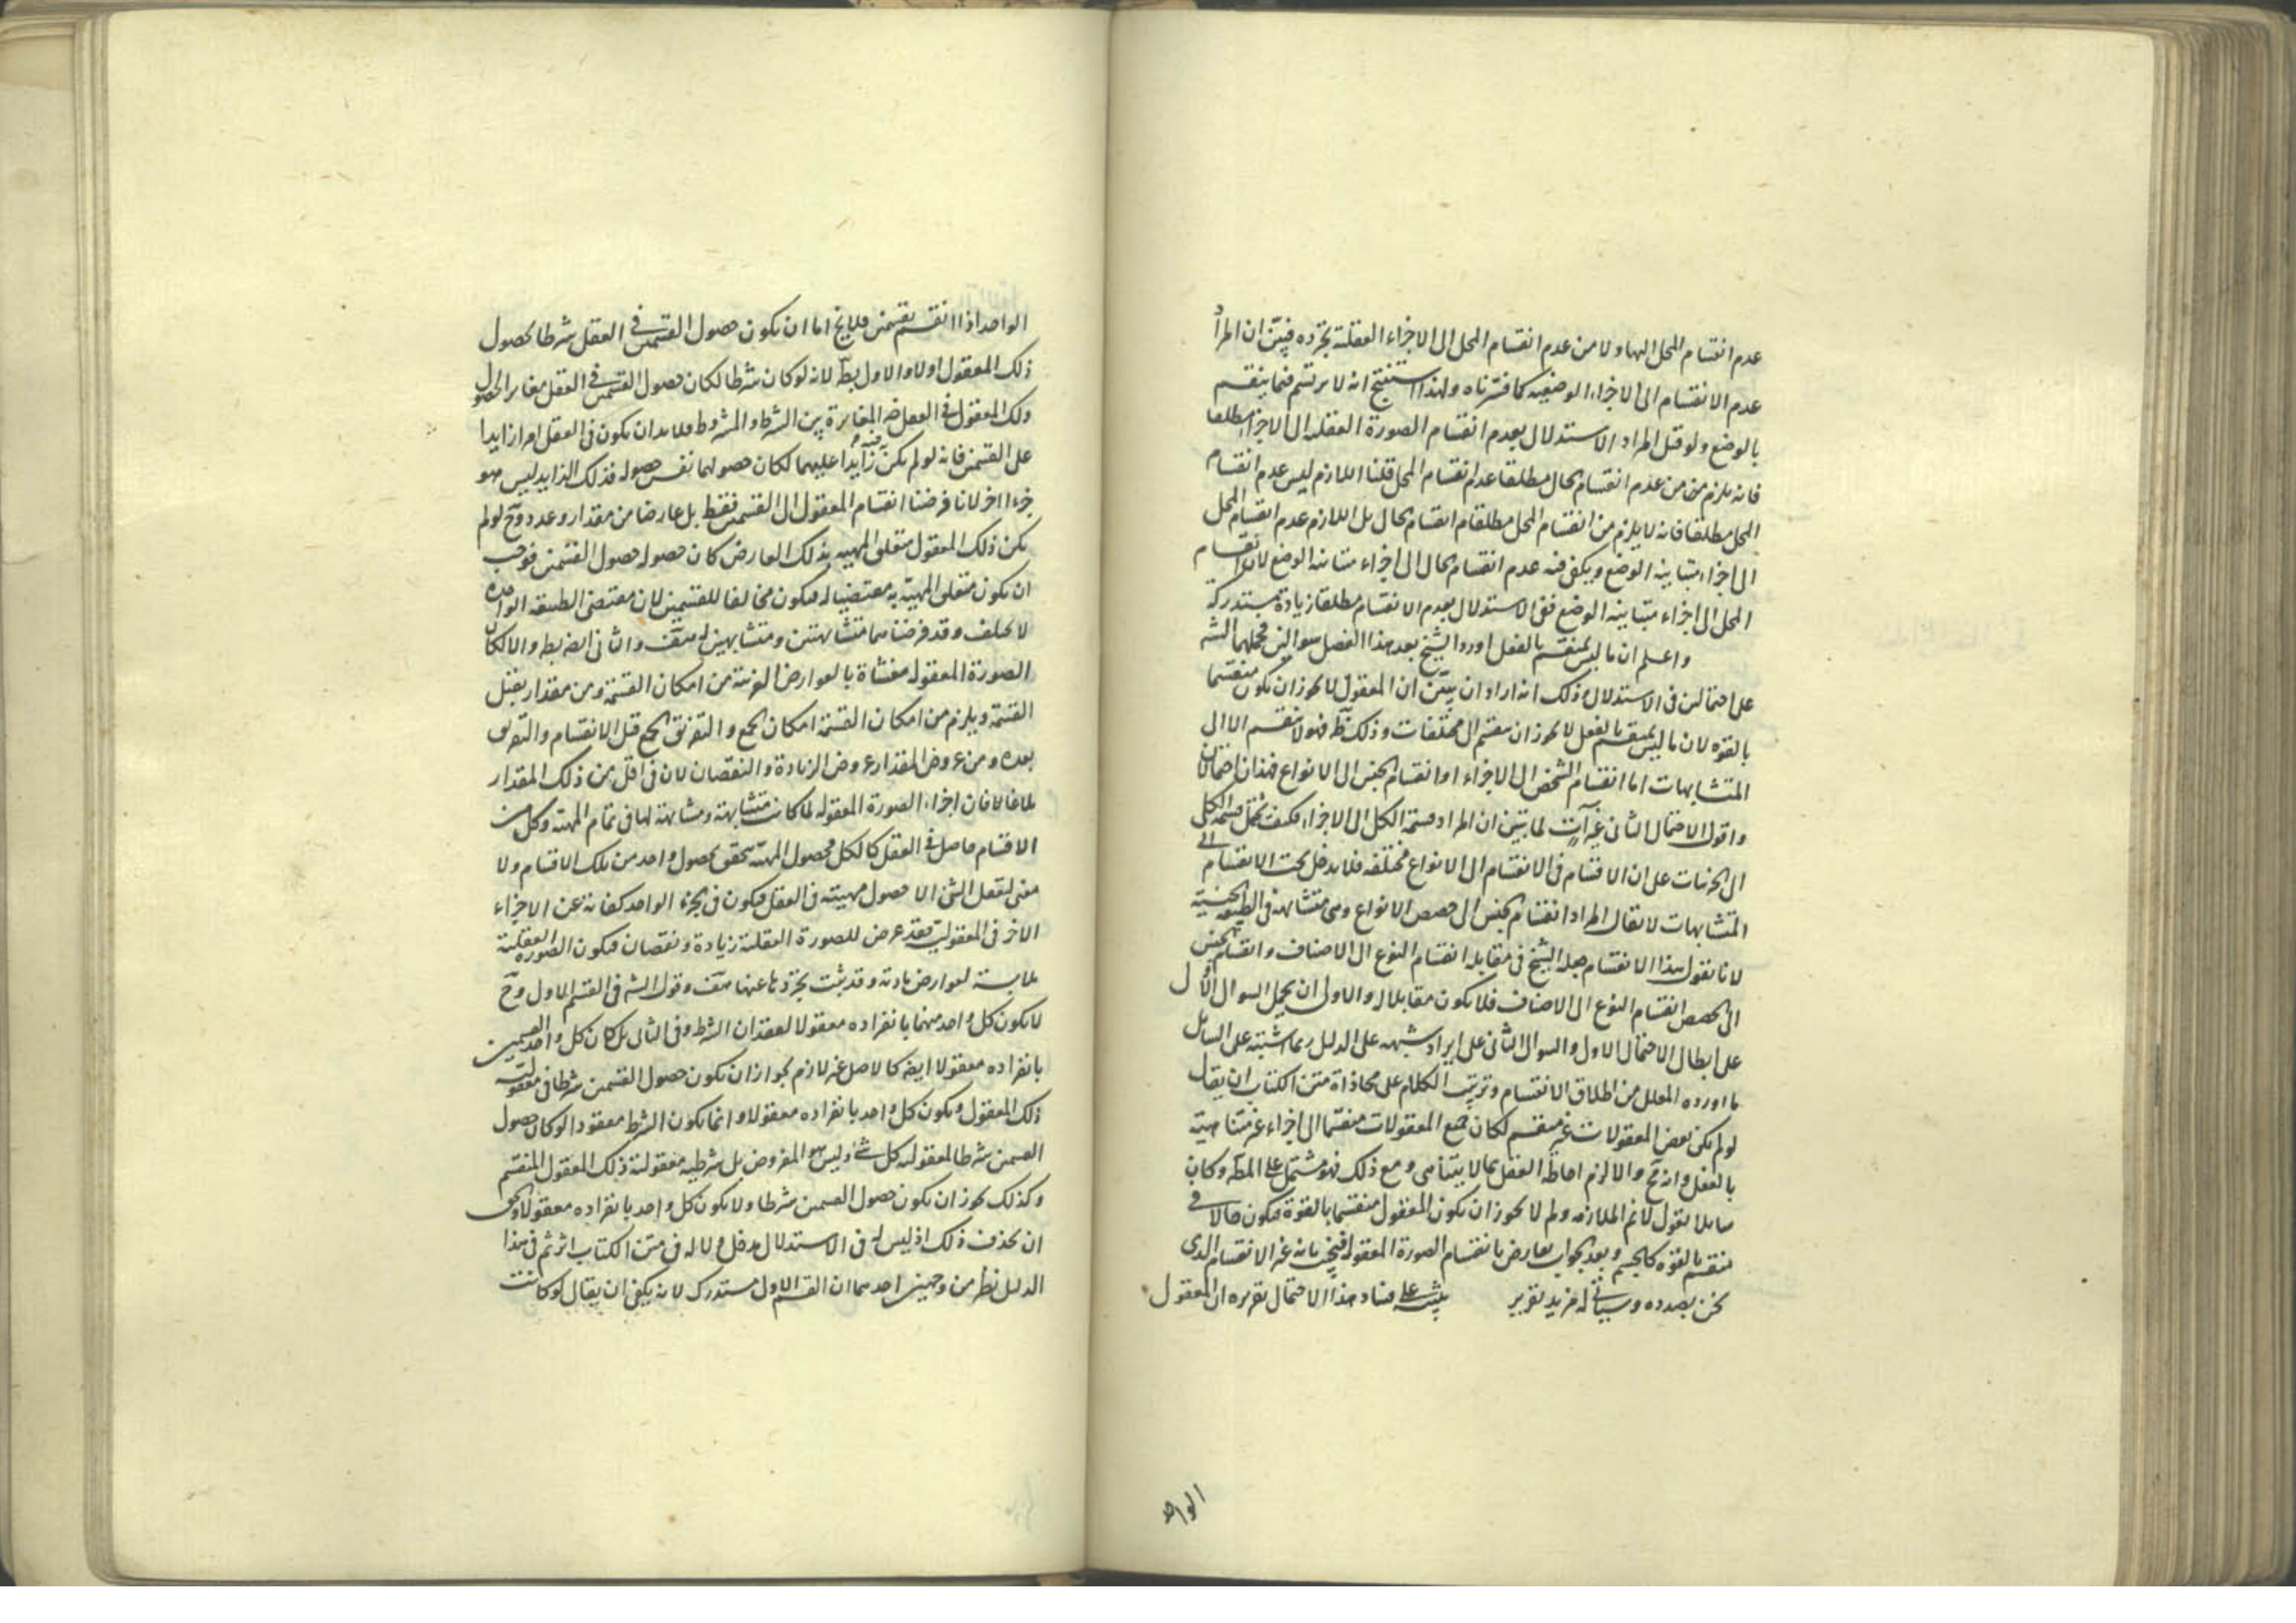 عدم انقسام المحل اليها ولا من عدم انقسام المحل الى الاجزاء العقلية تجرده فتبين ان المراد
عدم الانقسام الى الاجزاء الوضعية كما قررناه ولهذا استنتج انه لا يرتسم فيما ينقسم
بالوضع ولو قيل المراد الاستدلال بعدم انقسام الصورة العقلية الى الاجزاء مطلقا
فانه يلزم من عدم انقسام الحال مطلقا عدم انقسام المحل قلنا اللازم ليس عدم انقسام
المحل مطلقا فانه لا يلزم من انقسام المحل مطلقا انقسام الحال بل اللازم عدم انقسام المحل
الى اجزاء متباينة الوضع ويكفى فيه عدم انقسام الحال الى اجزاء متباينة الوضع لانقسام
المحل الى اجزاء متباينة الوضع ففى الاستدلال بعدم الانقسام مطلقا زيادة مستدركة
واعلم ان ما ليس بمنقسم بالفعل اورد الشيخ بعد هذا الفصل سوالين فحملهما الشه
على احتمالين فى الاستدلال وذلك انه اراد ان يبين ان المعقول لا يجوز ان يكون منقسما
بالقوة لان ما ليس بمنقسم بالفعل لا يجوز ان ينقسم الى مختلفات وذلك ظ فهو لا ينقسم الا الى
المتشابهات اما انقسام الشخص الى الاجزاء او انقسام الجنس الى الانواع فهذان احتمالان
واقول الاحتمال الثانى غير آت لما تبين ان المراد قسمة الكل الى الاجزاء فكيف يحتمل قسمة الكلى
الى الجزئيات على ان الاقسام فى الانقسام الى الانواع مختلفة فلا يدخل تحت الانقسام الى
المتشابهات لا يقال المراد انقسام الجنس الى حصص الانواع وهى متشابهة فى الطبيعة الجنسية
لانا نقول هذا الانقسام جعله الشيخ فى مقابلة انقسام النوع الى الاصناف وانقسام الجنس
الى الحصص انقسام النوع الى الاصناف فلا يكون مقابلا له والاولى ان يحمل السوال الاول
على ابطال الاحتمال الاول والسوال الثانى على ايراد شبهة على الدليل ربما اشتبه على السائل
ما اورده المعلل من اطلاق الانقسام وترتيب الكلام على محاذاة متن الكتاب ان يقال
لو لم يكن بعض المعقولات غير منقسم لكان جميع المعقولات منقسما الى اجزاء غير متناهية
بالفعل وانه مح والا لزم احاطة العقل بما لا يتناهى ومع ذلك فهو مشتمل على المط وكان
سايلا يقول لا نم الملازمة ولم لا يجوز ان يكون المعقول منقسما بالقوة فيكون حالا فى
منقسم بالقوة كالجسم وبعد الجواب يعارض بانقسام الصورة المعقولة فيجيب بانه غير الانقسام الذى
نحن بصدده وسياتى له مزيد تقرير على فساد هذا الاحتمال تقريره ان المعقول
الواحد
الواحد اذا انقسم بقسمين فلا يخ اما ان يكون حصول القسمين فى العقل شرطا لحصول
ذلك المعقول اولا والاول بط لانه لو كان شرطا لكان حصول القسمين فى العقل مغاير الحصول
ذلك المعقول فى العقل ضرورة المغايرة بين الشرط والمشروط فلا بد ان يكون فى العقل امرا زايدا
على القسمين فانه لو لم يكن زايدا عليهما لكان حصولهما نفس حصوله فذلك الزايد ليس هو
جزءا اخر لانا فرضنا انقسام المعقول الى القسمين فقط بل عارضا من مقدار وعدد وح لو لم
يكن ذلك المعقول متعلق المهية بذلك العارض كان حصوله حصول القسمين فوجب
ان يكون متعلق المهية به مقتضيا له فيكون مخالفا للقسمين لان مقتضى الطبيعة الواحدة
لا يختلف وقد فرضناهما متشابهين ومتشابهين له هف والثانى ايضا بط والا لكان
الصورة المعقولة مغشاة بالعوارض الغريبة من امكان القسمة ومن مقدار يقبل
القسمة ويلزم من امكان القسمة امكان الجمع والتفريق الجمع قبل الانقسام والتفريق
بعده ومن عروض المقدار عروض الزيادة والنقصان لان فى اقل من ذلك المقدار
بلاغا لان اجزاء الصورة المعقولة لما كانت متشابهة ومشابهة لها فى تمام المهية وكل من
الاقسام حاصل فى العقل كالكل فحصول المهية يتحقق بحصول واحد من تلك الاقسام ولا
معنى لتعقل الشئ الا حصول مهيته فى العقل فيكون فى الجزء الواحد كفاية عن الاجزاء
الاخر فى المعقولية فقد عرض للصورة العقلية زيادة ونقصان فيكون الصورة العقلية
ملابسة لعوارض مادية وقد ثبت تجردها عنها هف وقول الشه فى القسم الاول وح
لا يكون كل واحد منهما بانفراده معقولا لفقدان الشرط وفى الثانى بل كان كل واحد من القسمين
بانفراده معقولا ايضا كالاصل غير لازم لجواز ان يكون حصول القسمين شرطا فى معقولية
ذلك المعقول ويكون كل واحد بانفراده معقولا وانما يكون الشرط مفقودا لو كان حصول
القسمين شرطا لمعقولية كل شئ وليس هو المفروض بل شرطية معقولية ذلك المعقول المنقسم
وكذلك يجوز ان يكون حصول القسمين شرطا ولا يكون كل واحد بانفراده معقولا والحق
ان يحذف ذلك اذ ليس له فى الاستدلال مدخل ولا له فى متن الكتاب اثر ثم فى هذا
الدليل نظر من وجهين احدهما ان القسم الاول مستدرك لانه يكفى ان يقال لو كانت